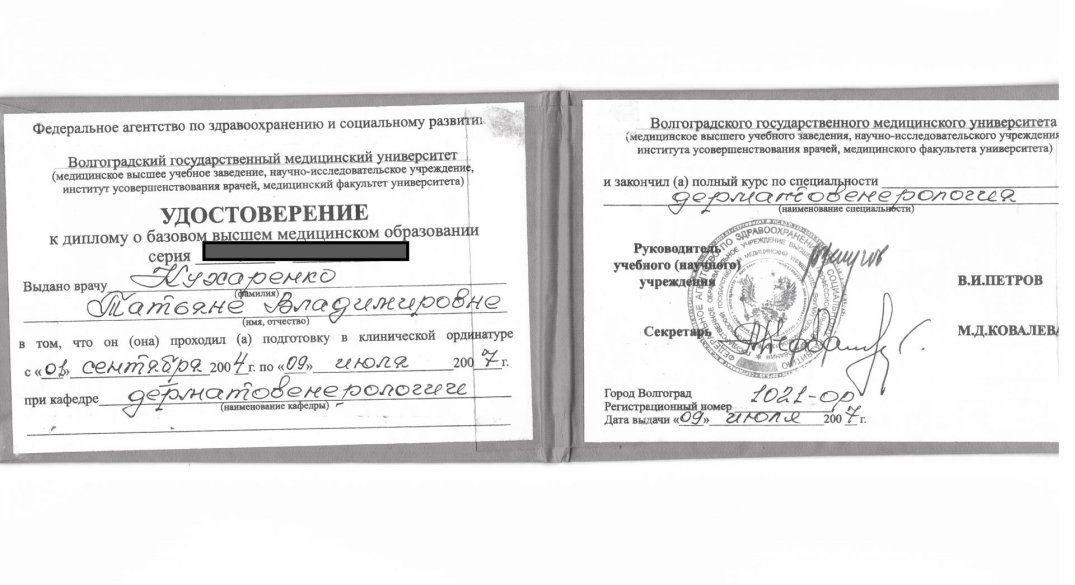 Федеральное агентство по здравоохранению и социальному развитию
Волгоградский государственный медицинский университет
(медицинское высшее учебное заведение, научно-исследовательское учреждение,
институт усовершенствования врачей, медицинский факультет университета)
УДОСТОВЕРЕНИЕ
к диплому о базовом высшем медицинском образовании
серия
Выдано врачу Кухаренко
(фамилия)
Татьяне Владимировне
(имя, отчество)
в том, что он (она) проходил (а) подготовку в клинической ординатуре
с «01» сентября 2004 г. по «09» июля 2007 г.
при кафедре дерматовенерологии
(наименование кафедры)
Волгоградского государственного медицинского университета
(медицинское высшего учебного заведения, научно-исследовательского учреждения
института усовершенствования врачей, медицинского факультета университета)
и закончил (а) полный курс по специальности
дерматовенерология
(наименование специальности)
Руководитель
учебного (научного)
учреждения
В.И.ПЕТРОВ
Секретарь
М.Д.КОВАЛЕВА
Город Волгоград
Регистрационный номер 1021-ор
Дата выдачи «09» июля 2007 г.